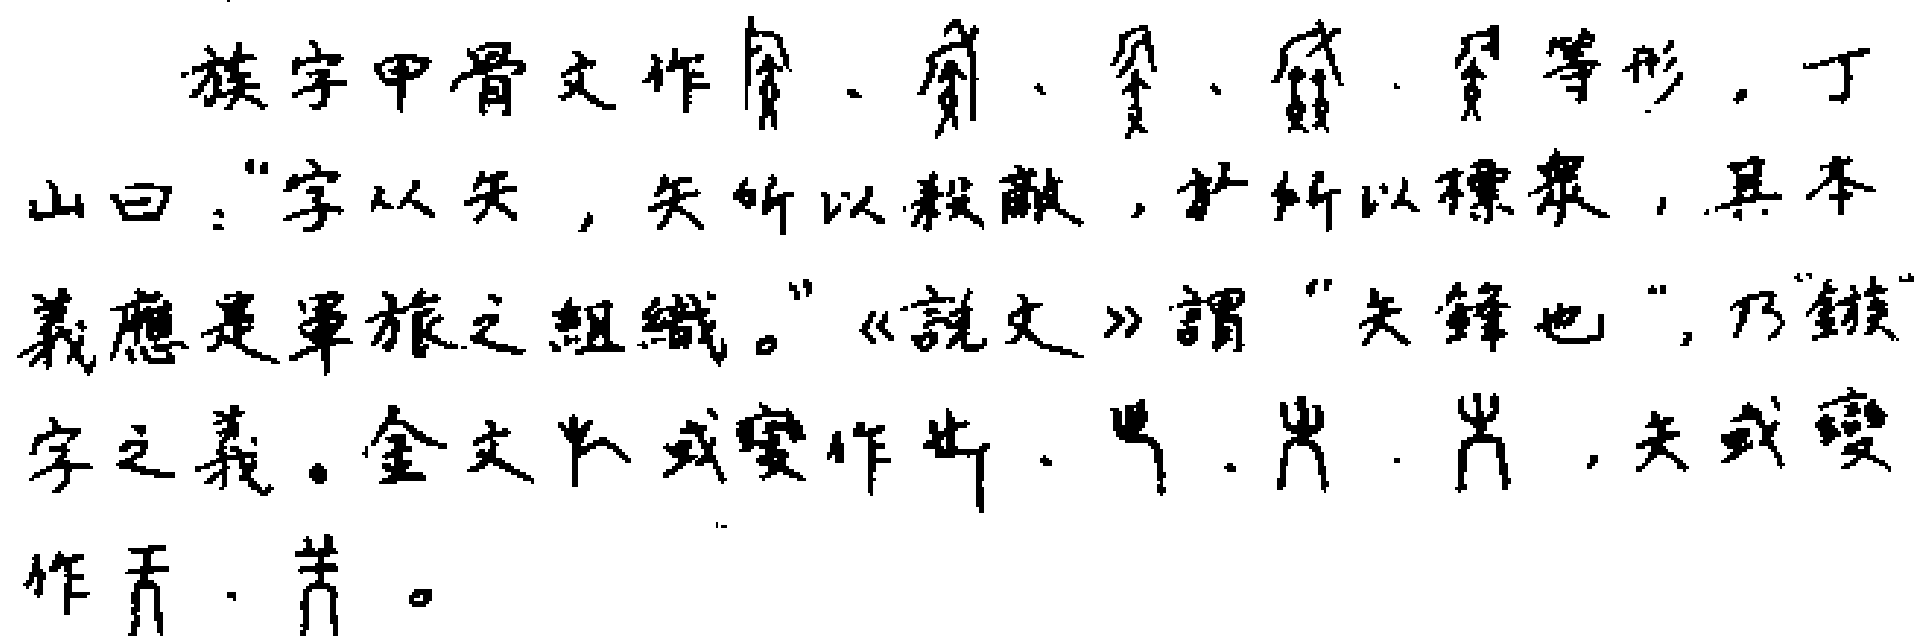 族字甲骨文作、、、、等形，丁
山曰："字从矢，矢所以殺敵，㫃所以標衆，其本
義應是軍旅之組織。"《說文》謂"矢鋒也"，乃"鏃"
字之義。金文㫃或變作、、、，矢或變
作、。